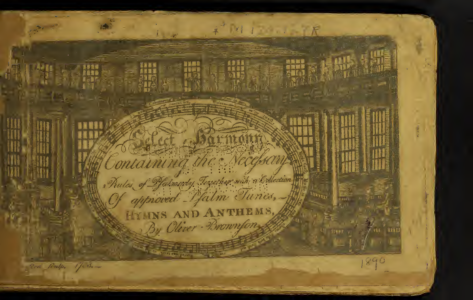 Select Harmony
Containing the Necessary
Rules of Psalmody Together with a Collection
Of approved Psalm Tunes,
HYMNS AND ANTHEMS,
By Oliver Brownson
1890